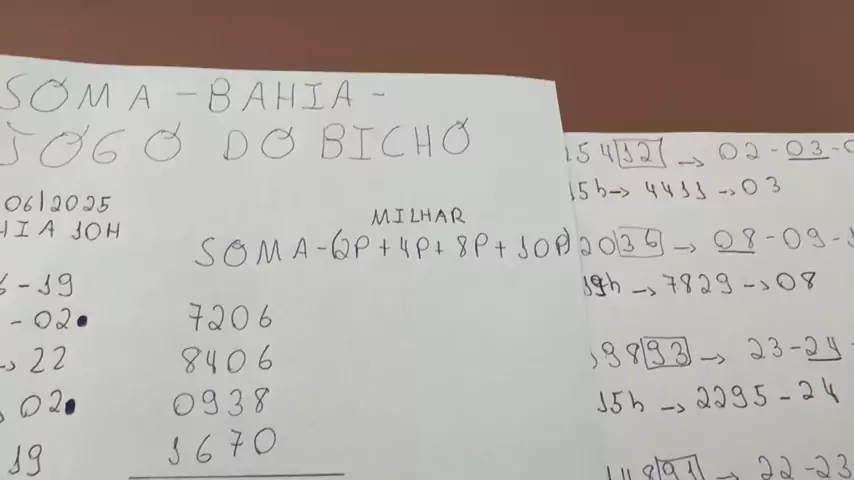 SOMA - BAHIA -
JOGO DO BICHO
06/2025
HIA 10H
MILHAR
SOMA - (2P + 4P + 8P + 10P)
6 - 19
- 02.
7206
→ 22
8406
02.
0938
19
1670
154 12 → 02 - 03 -
15h → 4411 → 03
20 36 → 08 - 09 - 1
19h → 7829 → 08
198 93 → 23 - 24
15h → 2295 - 24
118 91 → 22 - 23